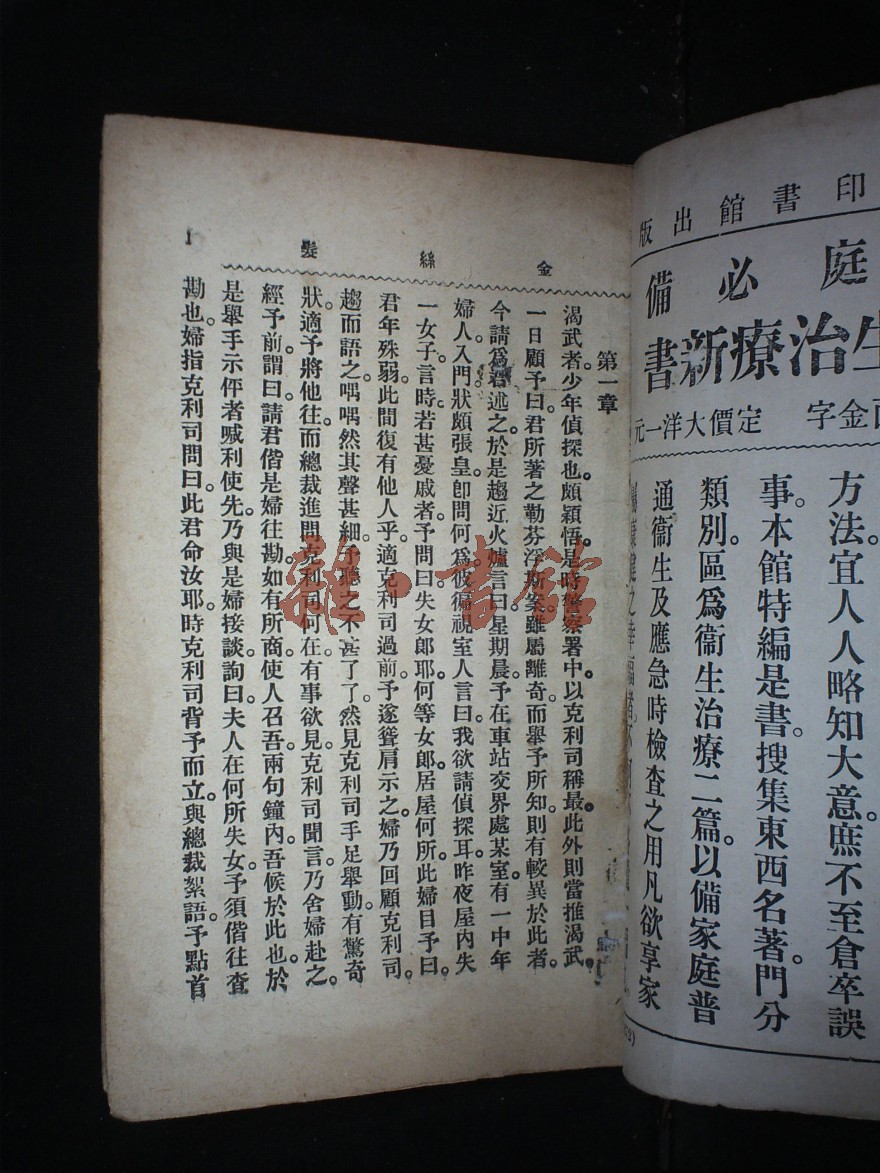 印書館出版
庭必備
生治療新書
金字 定價大洋一元
方法宜人人略知大意庶不至倉卒誤
事。本館特編是書。搜集東西名著。門分
類別。區爲衞生治療二篇。以備家庭普
通衞生及應急時檢查之用凡欲享家
康健之幸福者不可不
金絲髮
第一章
渴武者。少年偵探也。頗穎悟。是時警察署中。以克利司稱最。此外則當推渴武。
一日顧予曰。君所著之勒芬浮斯案。雖屬離奇。而舉予所知。則有較異於此者。
今請爲君述之。於是趨近火爐言曰。星期晨。予在車站交界處某室。有一中年
婦人。入門狀頗張皇。卽問何爲。彼徧視室人言曰。我欲請偵探耳。昨夜屋內失
一女子。言時。若甚憂戚者。予問曰。失女郎耶。何等女郎。居屋何所。此婦目予曰。
君年殊弱。此間復有他人乎。適克利司過前。予遂聳肩示之。婦乃回顧克利司。
趨而語之。喁喁然其聲甚細。予聽之不甚了了。然見克利司手足舉動。有驚奇
狀。適予將他往。而總裁進問克利司何在。有事欲見。克利司聞言。乃舍婦赴之。
經予前。謂曰。請君偕是婦往勘。如有所商。使人召吾。兩句鐘內。吾候於此也。於
是舉手示伻者喊利使先。乃與是婦接談。詢曰。夫人在何所失女。予須偕往查
勘也。婦指克利司問曰。此君命汝耶。時克利司背予而立。與總裁絮語。予點首
1
雜·書館